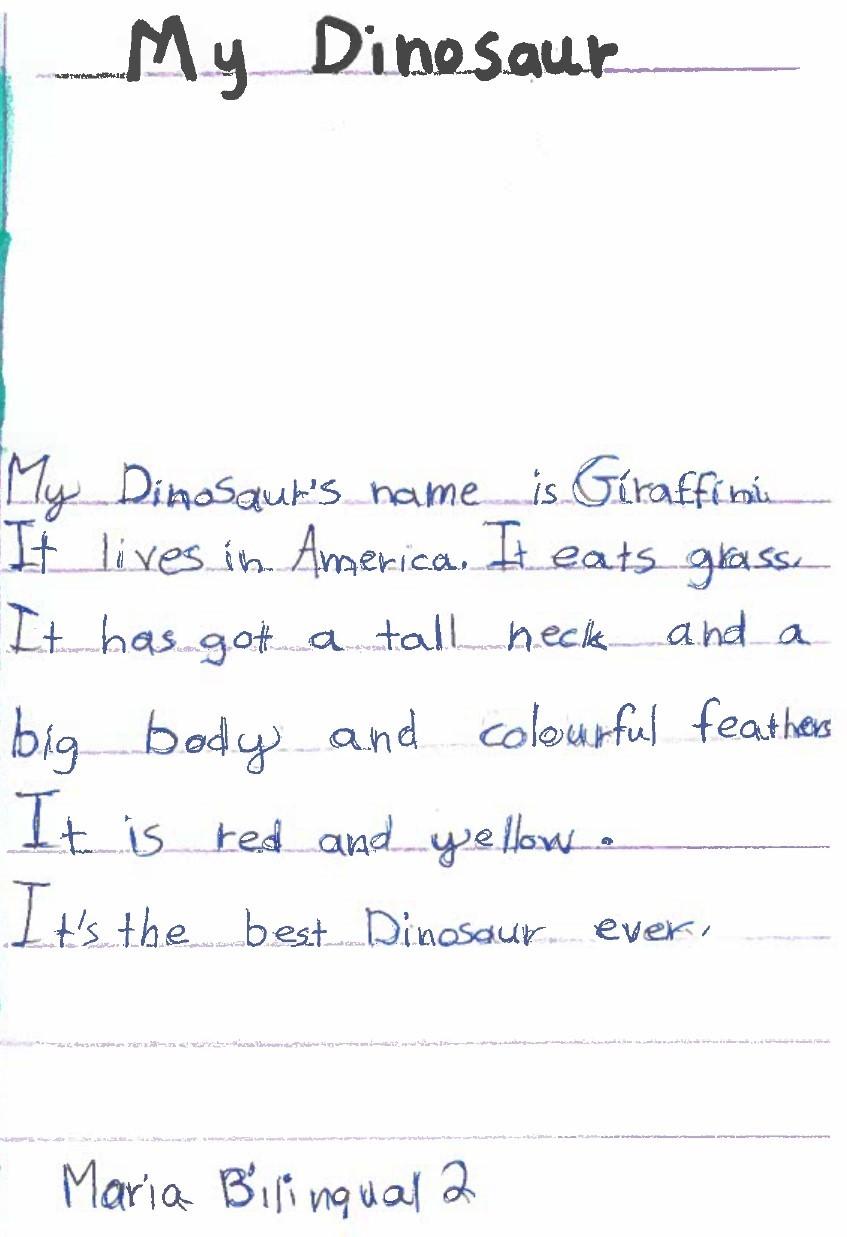 My Dinosaur
My Dinosaur's name is Giraffini
It lives in America. It eats grass.
It has got a tall neck and a
big body and colourful feathers
It is red and yellow.
It's the best Dinosaur ever.
Maria Bilingual 2